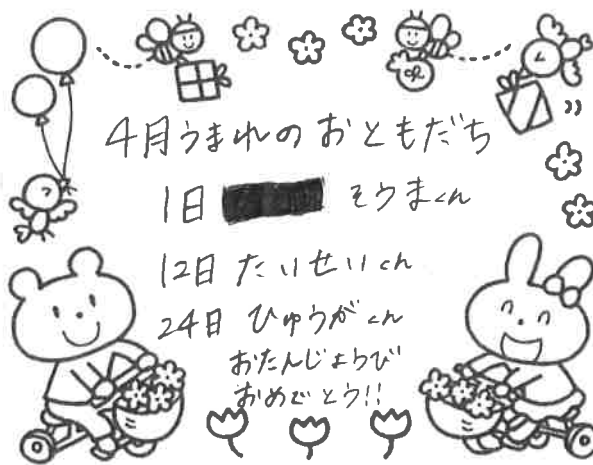 4月うまれのおともだち
1日 そうまくん
12日 たいせいくん
24日 ひゅうがくん
おたんじょうび
おめでとう!!